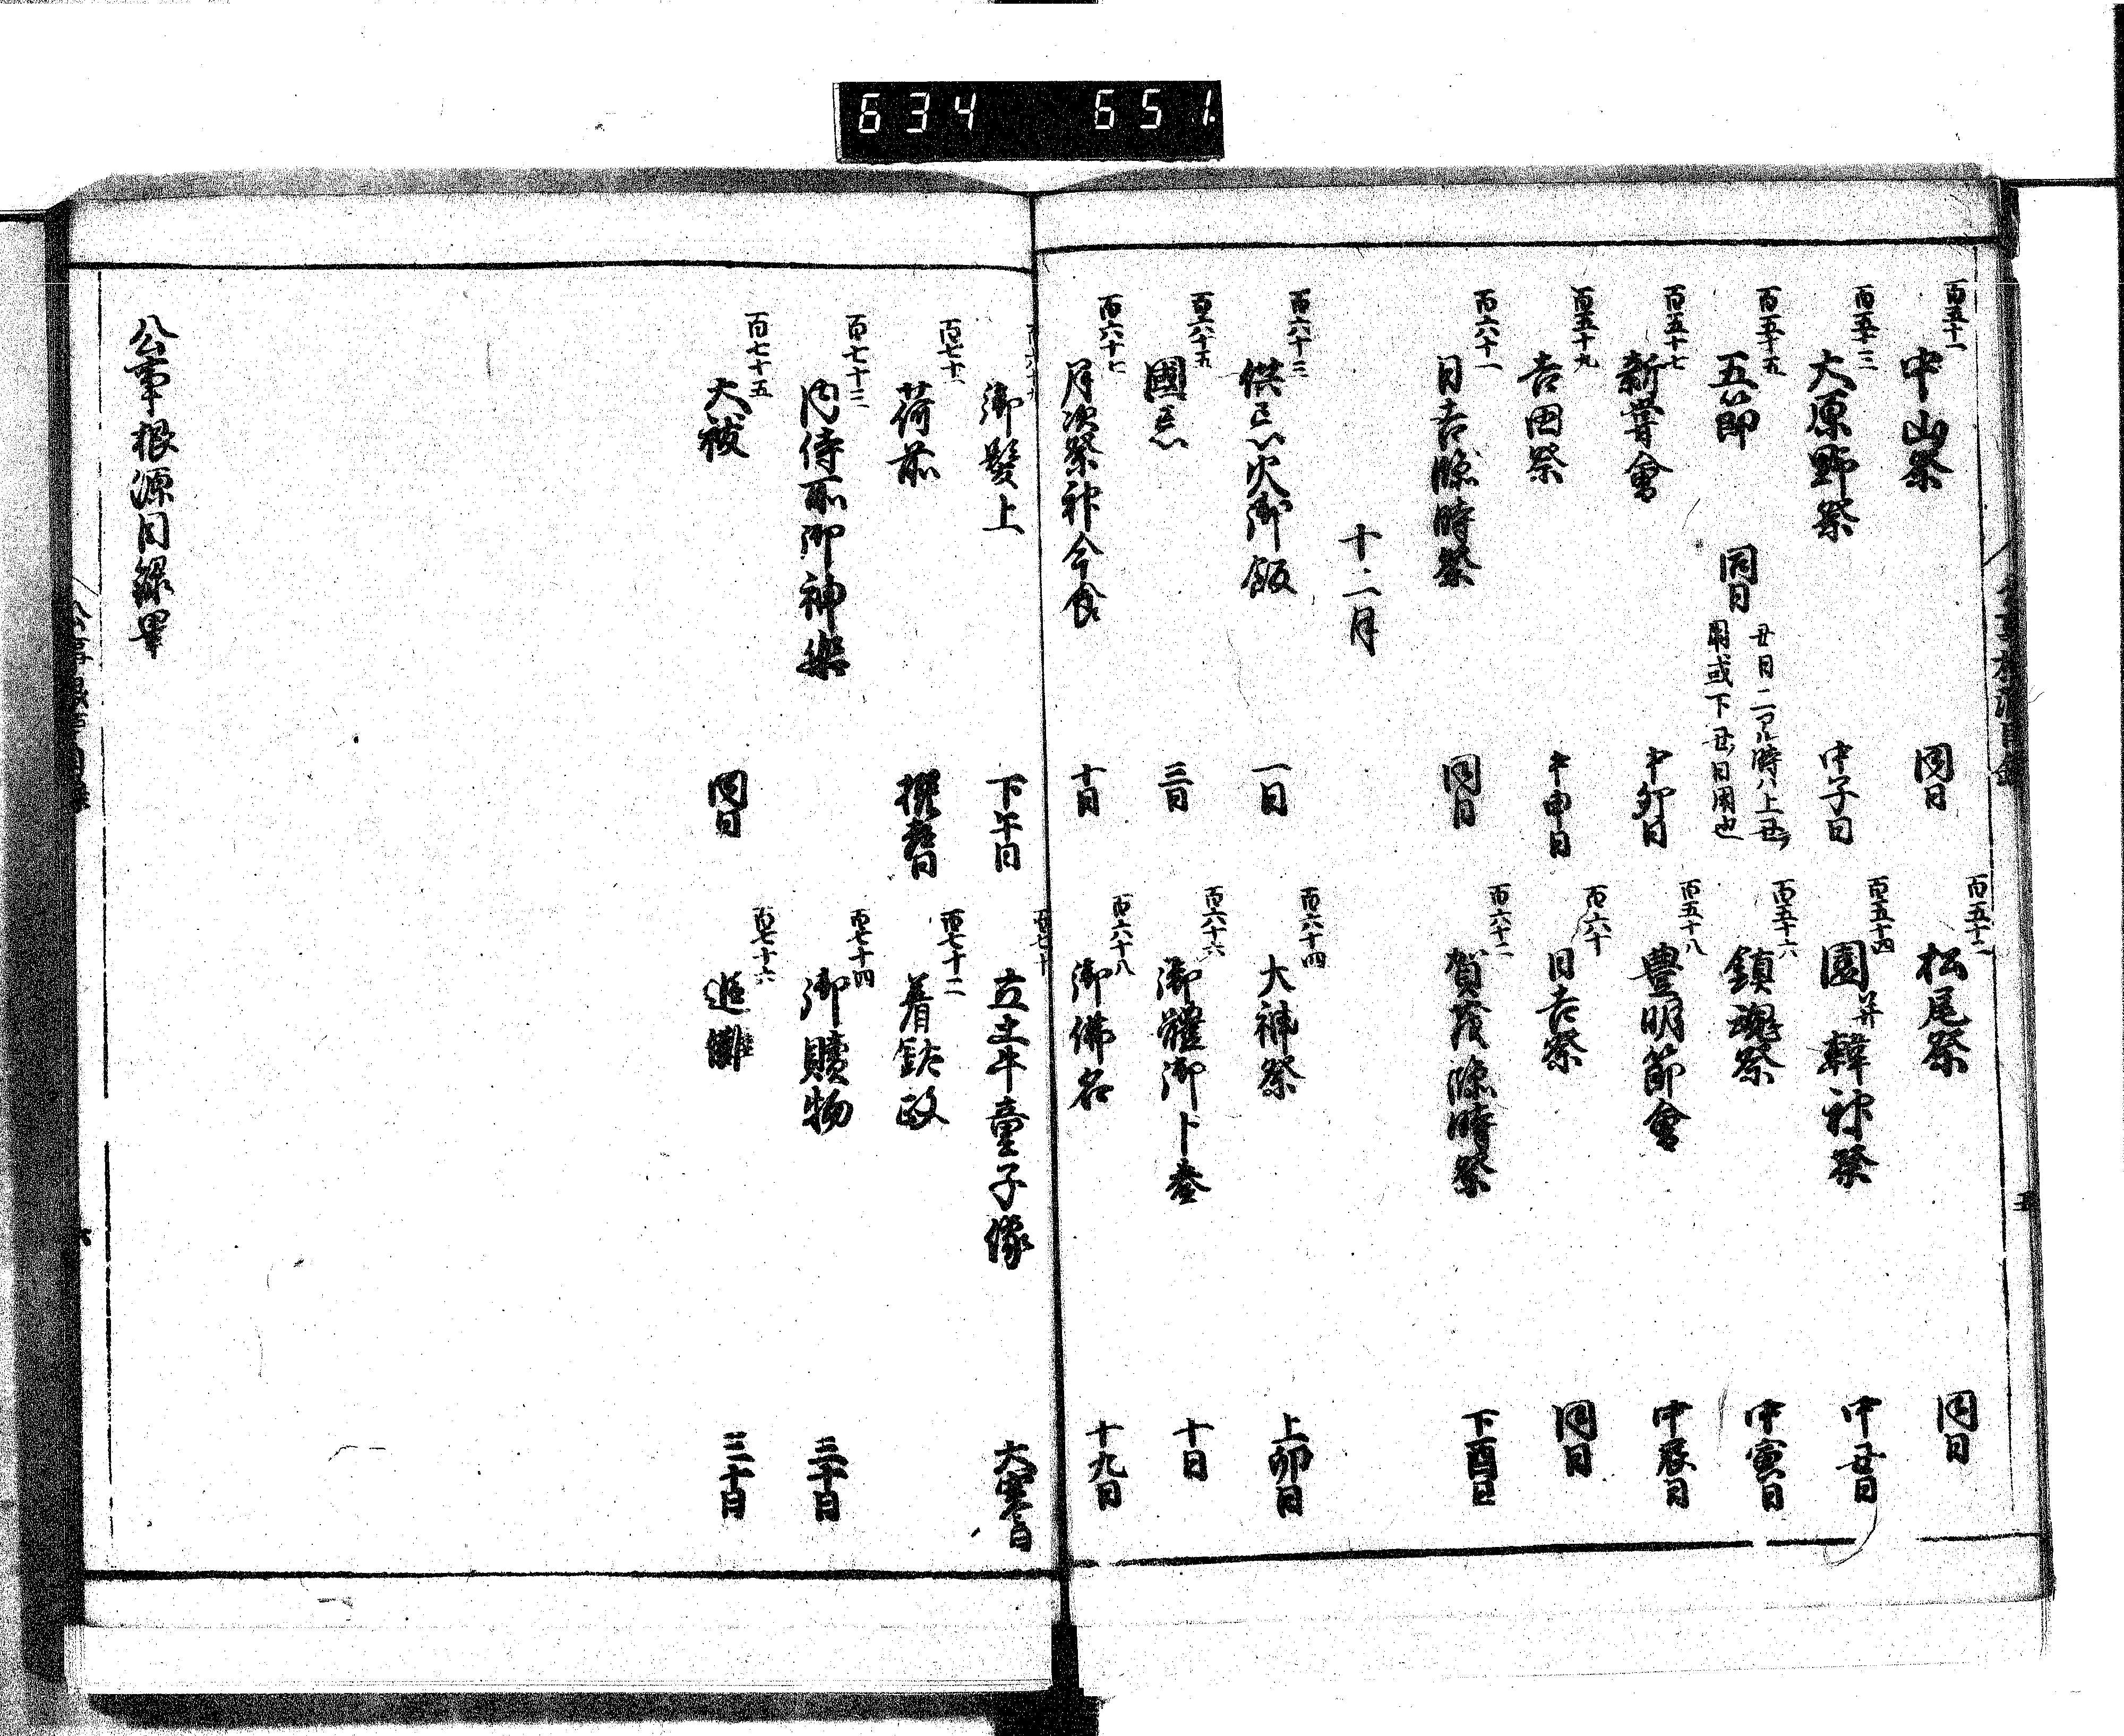 634 651
百五十一 中山祭 同日
百五十二 松尾祭 同日
百五十三 大原野祭 中子日
百五十四 園并韓神祭 中丑日
百五十五 五節 同日 丑日二アル時ハ上丑
用或下丑日用也
百五十六 鎮魂祭 中寅日
百五十七 新嘗會 中卯日
百五十八 豊明節會 中辰日
百五十九 吉田祭 中申日
百六十 日吉祭 同日
百六十一 日吉臨時祭 同日
百六十二 賀茂臨時祭 下酉日
十二月
百六十三 供忌火御飯 一日
百六十四 大神祭 上卯日
百六十五 國忌 三日
百六十六 御體御卜奏 十日
百六十七 月次祭神今食 十一日
百六十八 御佛名 十九日
御髪上 下午日
百七十 立土牛童子像 大寒日
百七十一 荷前 撰吉日
百七十二 着鈦政
百七十三 内侍所御神樂
百七十四 御贖物 三十日
百七十五 大祓 同日
百七十六 追儺 三十日
公事根源目録畢